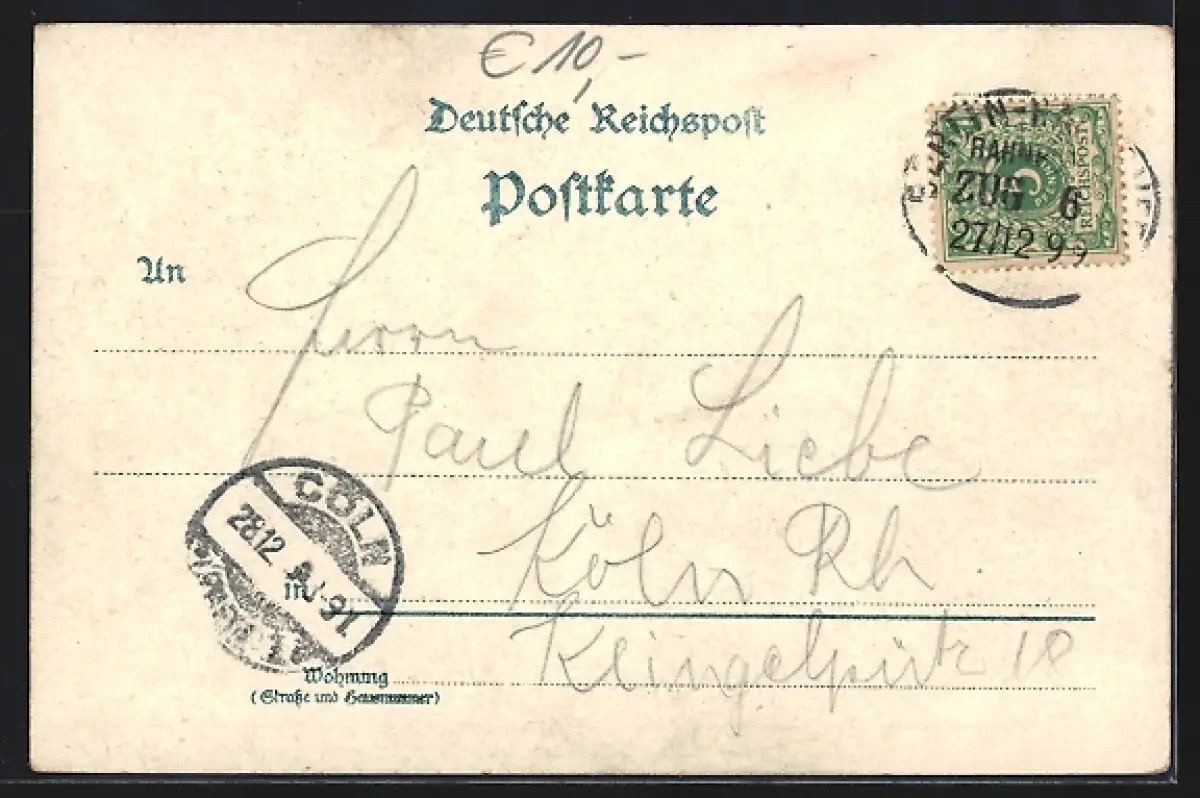 € 10,-
Deutsche Reichspost
Postkarte
An
BAHNP.
ZUG 6
27/12 99
REICHSPOST
Herrn
Paul Liebe
CÖLN
28.12.
Köln Rh
in
Klingelpütz 18
Wohnung
(Straße und Hausnummer)